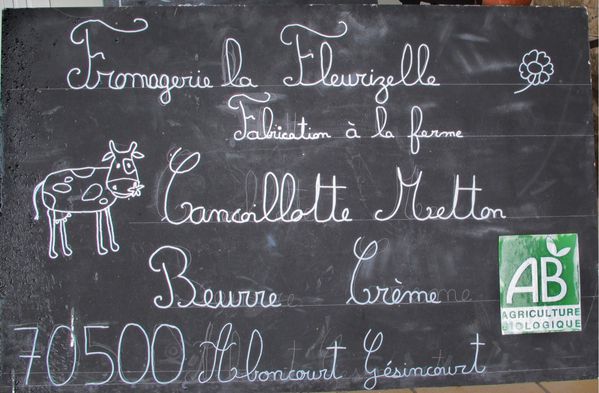 Fromagerie la Fleurizelle
Fabrication à la ferme
Cancoillotte Metton
Beurre Crème
AB
AGRICULTURE
BIOLOGIQUE
70500 Aboncourt Gésincourt